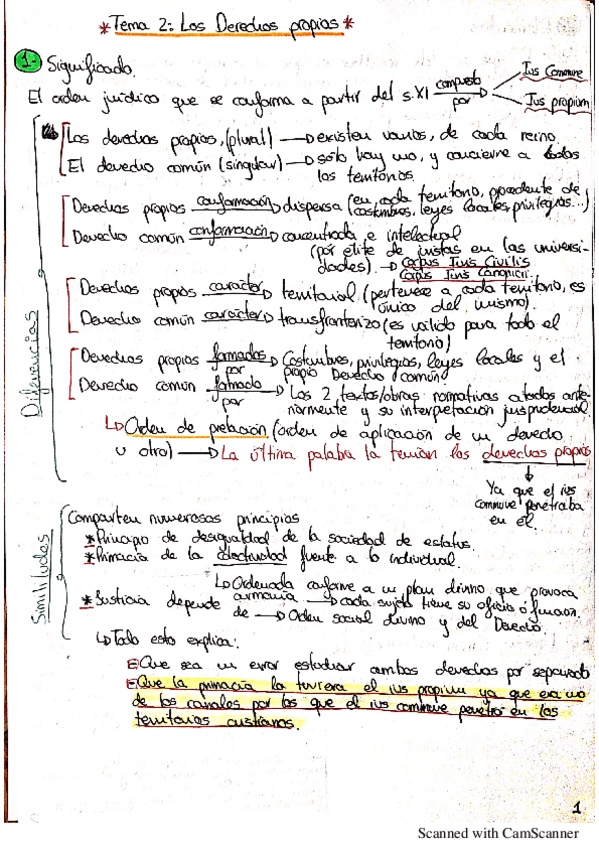 *Tema 2: Los Derechos propios*
1- Significado.
El orden jurídico que se conforma a partir del s.XI compuesto por → Ius Commune
→ Ius propium
Diferencias
Los derechos propios, (plural) → existen varios, de cada reino.
El derecho común (singular) → sólo hay uno, y concierne a todos
los territorios
Derechos propios conformación → dispersa (en cada territorio, procedente de
costumbres, leyes locales, privilegios...)
Derecho común conformación → concentrada e intelectual
(por élite de juristas en las universi-
dades). → Corpus Iuris Civilis
Corpus Iuris Canonicii.
Derechos propios carácter → territorial (pertenece a cada territorio, es
único del mismo).
Derecho común carácter → transfronterizo (es válido para todo el
territorio)
Derechos propios formados por → Costumbres, privilegios, leyes locales y el
propio Derecho común
Derecho común formado por → Los 2 textos/obras normativas citados ante-
riormente y su interpretación jurisprudencial.
↳ Orden de prelación (orden de aplicación de un derecho
u otro) → La última palabra la tenían los derechos propios
↓
Ya que el ius
commune penetraba
en el.
Similitudes
Comparten numerosos principios
*Principio de desigualdad de la sociedad de estatus.
*Primacía de la colectividad frente a lo individual.
↳ Ordenada conforme a un plan divino que provoca
armonía → cada sujeto tiene su oficio o función.
*Justicia depende de → Orden social divino y del Derecho.
↳ Todo esto explica:
- Que sea un error estudiar ambos derechos por separado
- Que la primacía la tuviera el ius propium ya que era uno
de los canales por los que el ius commune penetró en los
territorios cristianos.
1
Scanned with CamScanner